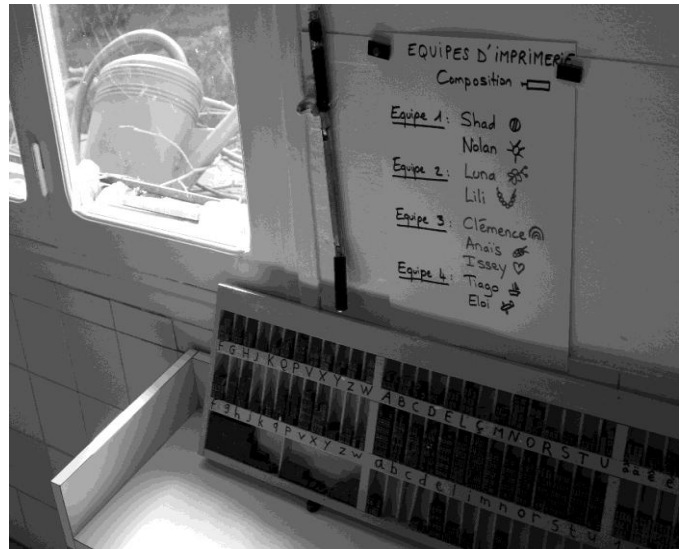 EQUIPES D'IMPRIMERIE
Composition
Equipe 1: Shad
Nolan
Equipe 2: Luna
Lili
Equipe 3: Clémence
Anaïs
Issey
Equipe 4: Tiago
Eloi
F G H J K Q P V X Y Z W A B C D E L Ç M N O R S T U
f g h j k q p v x y z w a b c d e l i m n o r s t u